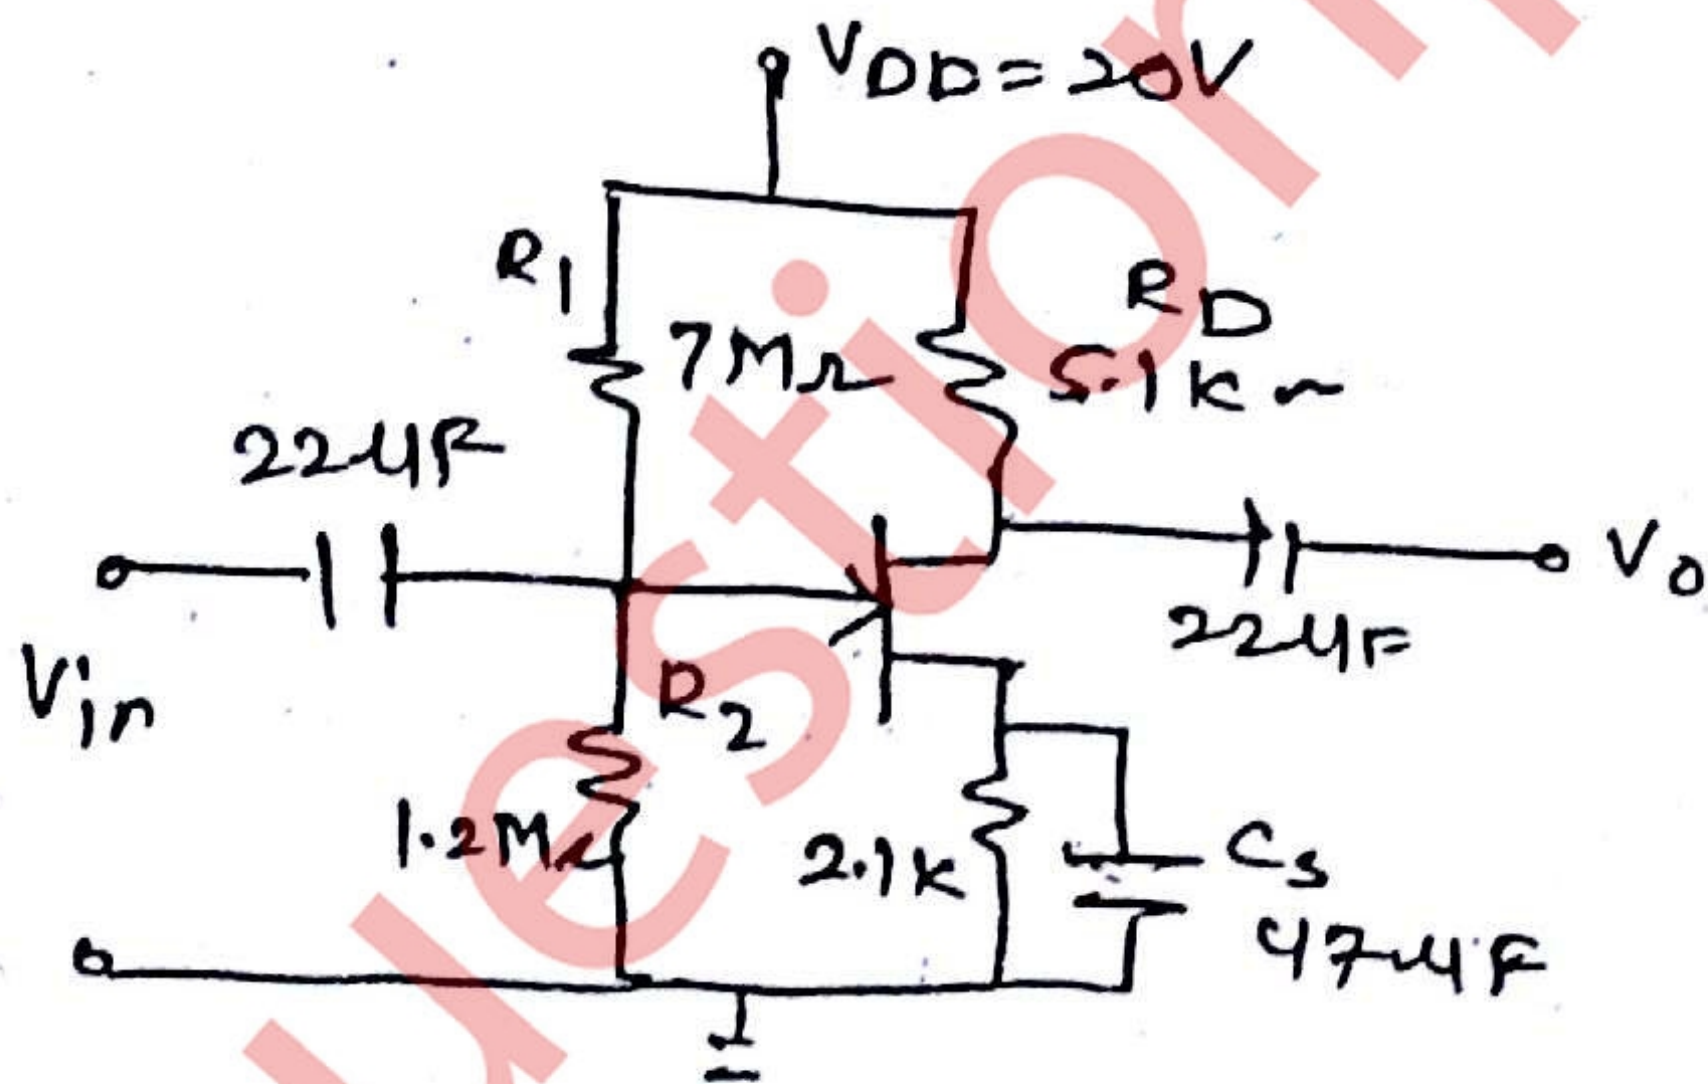 VDD = 20V
R1
7MΩ
RD
5.1K~
22μF
Vin
R2
Vo
22μF
1.2MΩ
2.1K
Cs
47μF
uestion